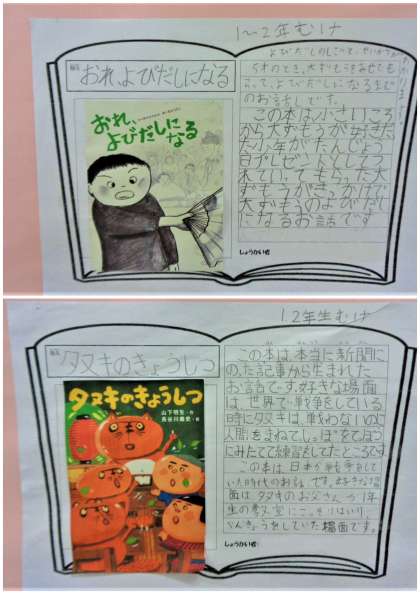 1〜2年むけ
題名 おれ、よびだしになる
おれ、
よびだしに
なる
よびだしのしごとと、せいかつが
5才のとき、大ずもうをみせても
らって、よびだしになるまで
のお話しです。
この本は小さいころ
から大ずもうが好きだ
た少年がたんじょう
日プレゼントとしてつ
れていってもらった大
ずもうがきっかけで
大ずもうのよびだし
になるお話です
しょうかい者
12年生むけ
題名 タヌキのきょうしつ
タヌキのきょうしつ
山下明生・作
長谷川義史・絵
この本は、本当に新聞に
のった記事から生まれた
お話です。好きな場面
は、世界で戦争をしている
時にタヌキは、戦わないのに
人間をまねてしっぽをてっぽう
にみたてて練習してたところです
この本は日本が戦争をして
いた時代のお話です。好きな場
面はタヌキのお父さんが1年
生の教室にこっそりはいり
べんきょうをしていた場面です。
しょうかい者